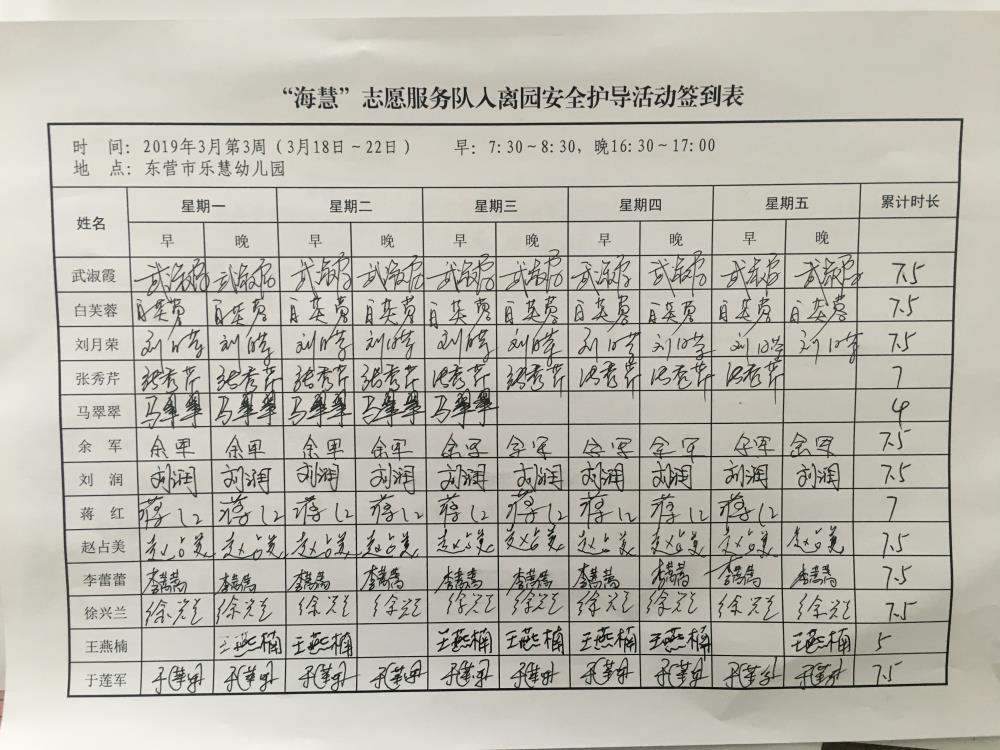 “海慧”志愿服务队入离园安全护导活动签到表
时 间：2019年3月第3周（3月18日～22日） 早：7:30～8:30，晚16:30～17:00
地 点：东营市乐慧幼儿园
姓名 星期一 星期二 星期三 星期四 星期五 累计时长
早 晚 早 晚 早 晚 早 晚 早 晚
武淑霞 武淑霞 武淑霞 武淑霞 武淑霞 武淑霞 武淑霞 武淑霞 武淑霞 武淑霞 武淑霞 7.5
白芙蓉 白芙蓉 白芙蓉 白芙蓉 白芙蓉 白芙蓉 白芙蓉 白芙蓉 白芙蓉 白芙蓉 白芙蓉 7.5
刘月荣 刘月荣 刘月荣 刘月荣 刘月荣 刘月荣 刘月荣 刘月荣 刘月荣 刘月荣 刘月荣 7.5
张秀芹 张秀芹 张秀芹 张秀芹 张秀芹 张秀芹 张秀芹 张秀芹 张秀芹 张秀芹 7
马翠翠 马翠翠 马翠翠 马翠翠 马翠翠 马翠翠 4
余 军 余军 余军 余军 余军 余军 余军 余军 余军 余军 余军 7.5
刘 润 刘润 刘润 刘润 刘润 刘润 刘润 刘润 刘润 刘润 刘润 7.5
蒋 红 蒋红 蒋红 蒋红 蒋红 蒋红 蒋红 蒋红 蒋红 蒋红 7
赵占美 赵占美 赵占美 赵占美 赵占美 赵占美 赵占美 赵占美 赵占美 赵占美 赵占美 7.5
李蕾蕾 李蕾蕾 李蕾蕾 李蕾蕾 李蕾蕾 李蕾蕾 李蕾蕾 李蕾蕾 李蕾蕾 李蕾蕾 李蕾蕾 7.5
徐兴兰 徐兴兰 徐兴兰 徐兴兰 徐兴兰 徐兴兰 徐兴兰 徐兴兰 徐兴兰 徐兴兰 徐兴兰 7.5
王燕楠 王燕楠 王燕楠 王燕楠 王燕楠 王燕楠 王燕楠 王燕楠 5
于莲军 于莲军 于莲军 于莲军 于莲军 于莲军 于莲军 于莲军 于莲军 于莲军 于莲军 7.5